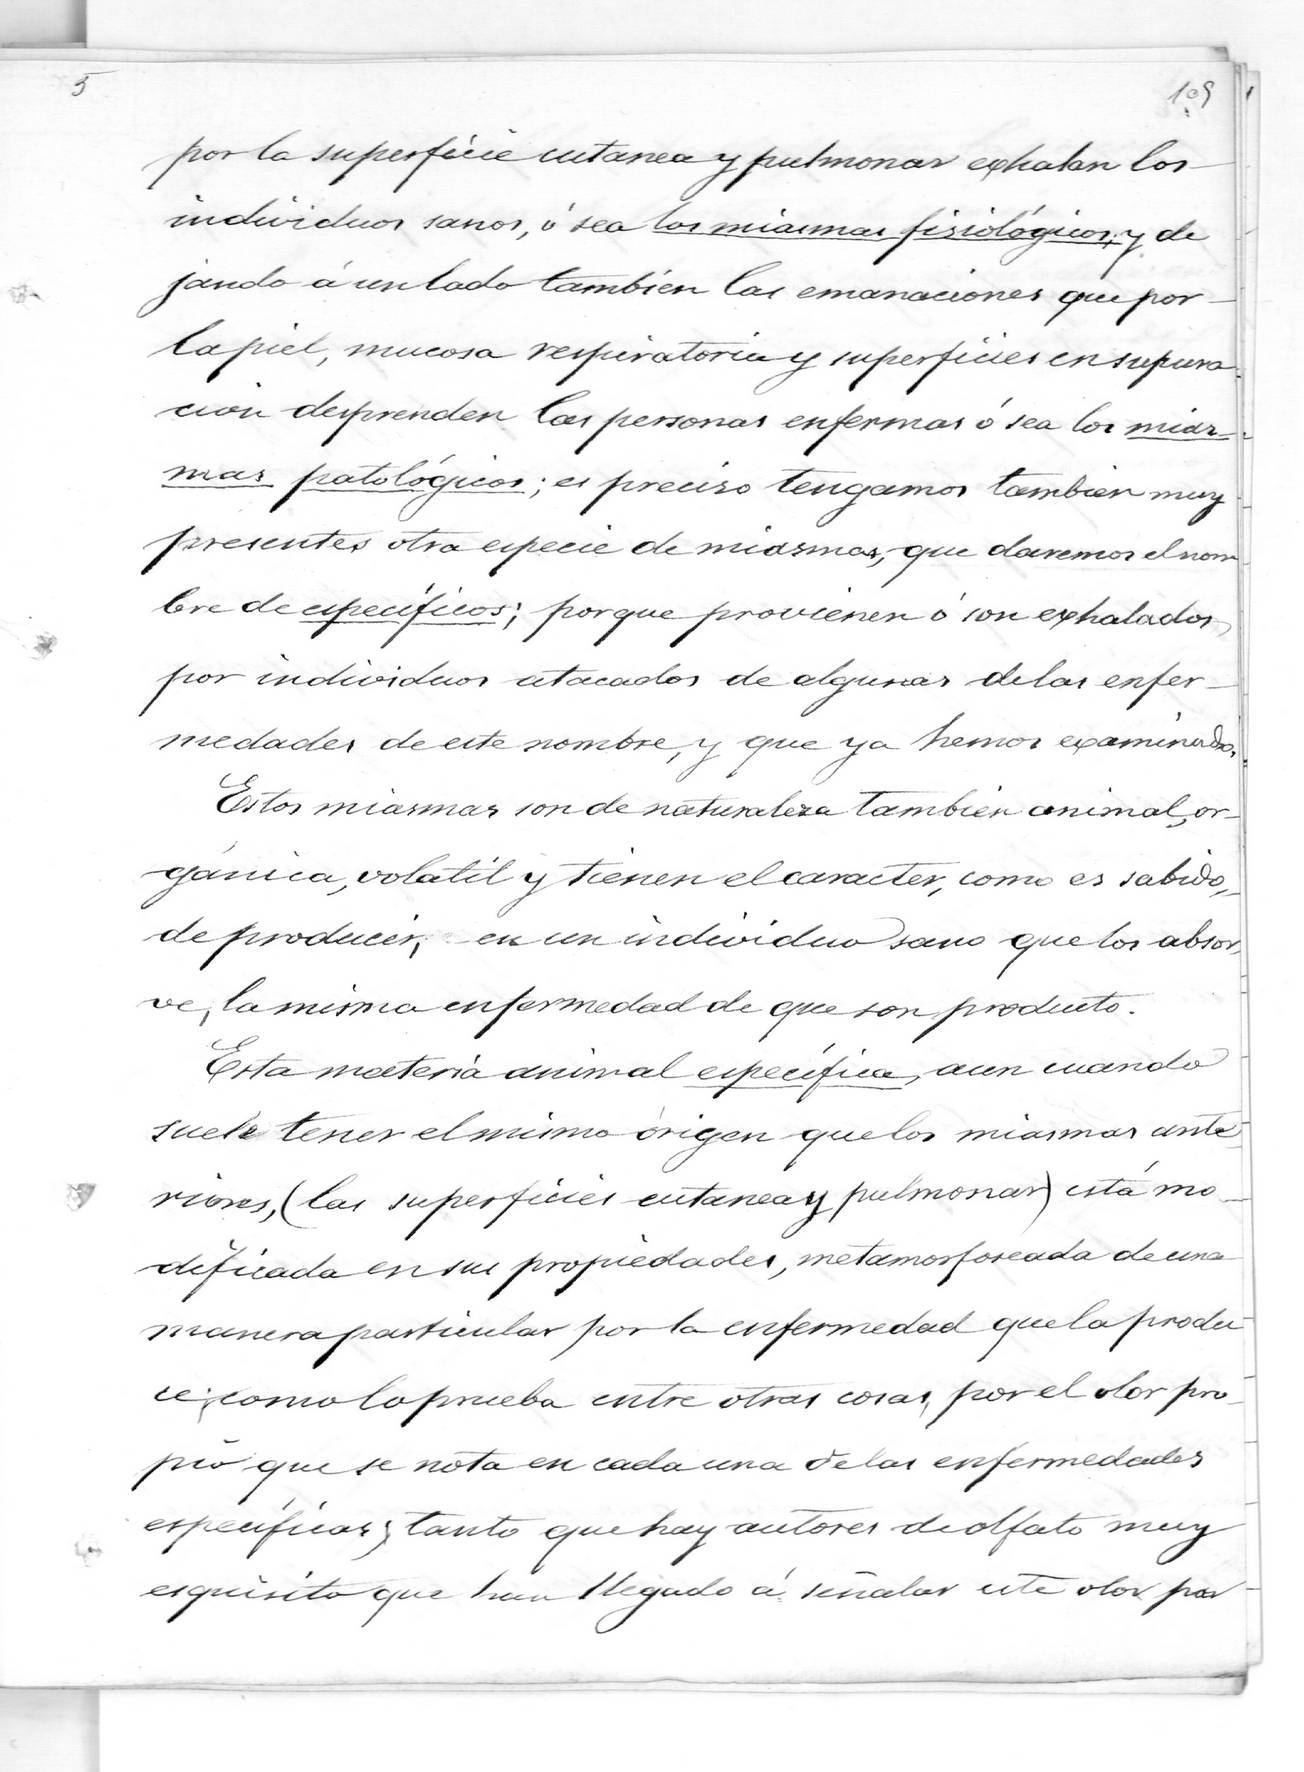 5
109
por la superficie cutanea y pulmonar exhalan los
individuos sanos, ó sea los miasmas fisiológicos, y de
jando á un lado tambien las emanaciones que por
la piel, mucosa respiratoria y superficies en supura
cion desprenden las personas enfermas ó sea los mias-
mas patológicos; es preciso tengamos tambien muy
presentes otra especie de miasmas, que daremos el nom
bre de específicos; porque provienen ó son exhalados
por individuos atacados de algunas de las enfer-
medades de este nombre, y que ya hemos examinado,
Estos miasmas son de naturaleza tambien animal, or-
gánica, volatil y tienen el caracter, como es sabido,
de producir, en un individuo sano que los absor,
ve, la misma enfermedad de que son producto.
Esta materia animal específica, aun cuando
suele tener el mismo órigen que los miasmas ante
riores, (las superficies cutanea y pulmonar) está mo-
dificada en sus propiedades, metamorfoseada de una
manera particular por la enfermedad que la produ
ce; como lo prueba entre otras cosas, por el olor pro
pio que se nota en cada una de las enfermedades
específicas; tanto que hay autores de olfato muy
esquisito que han llegado á señalar este olor par